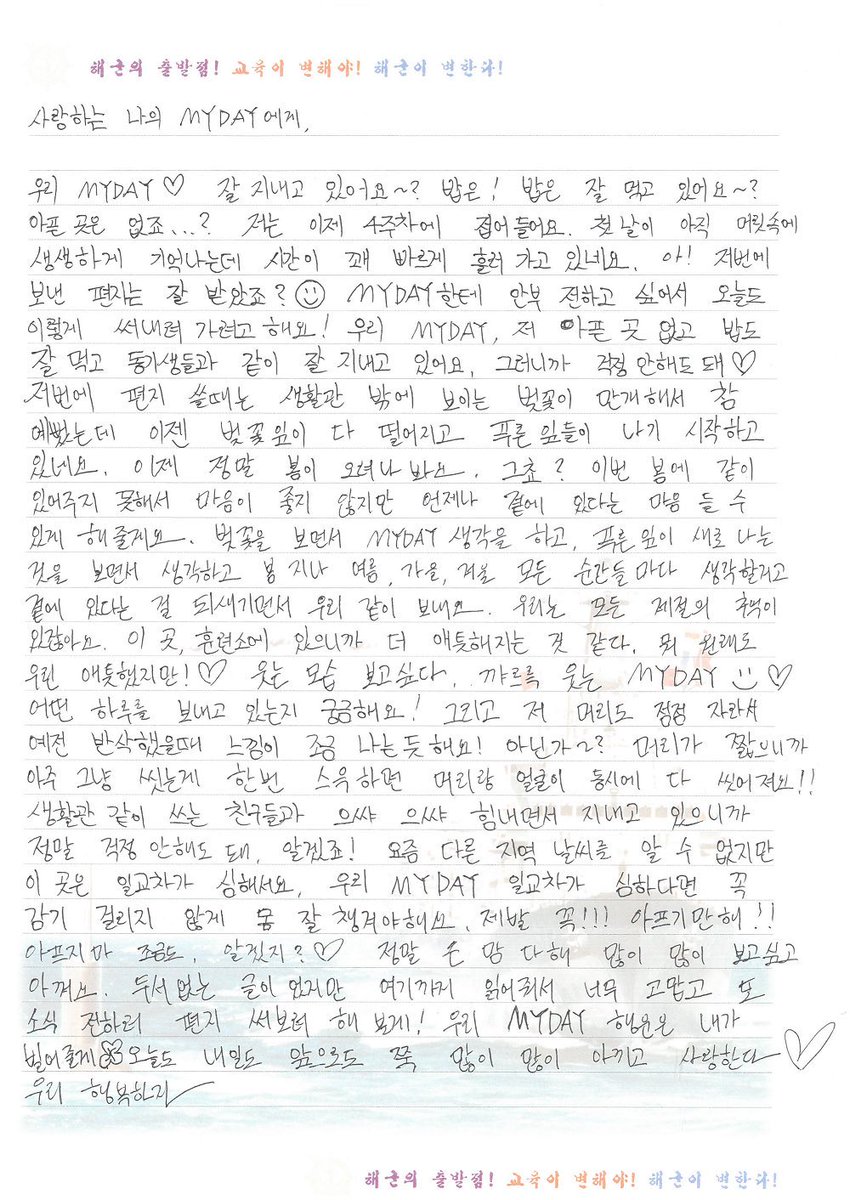 해군의 출발점! 교육이 변해야! 해군이 변한다!
사랑하는 나의 MYDAY에게,
우리 MYDAY♡ 잘 지내고 있어요~? 밥은! 밥은 잘 먹고 있어요~?
아픈 곳은 없죠...? 저는 이제 4주차에 접어들어요. 첫 날이 아직 머릿속에
생생하게 기억나는데 시간이 꽤 빠르게 흘러 가고 있네요. 아! 저번에
보낸 편지는 잘 받았죠?☺ MYDAY한테 안부 전하고 싶어서 오늘도
이렇게 써내려 가려고 해요! 우리 MYDAY, 저 아픈 곳 없고 밥도
잘 먹고 동기생들과 같이 잘 지내고 있어요, 그러니까 걱정 안해도 돼♡
저번에 편지 쓸때는 생활관 밖에 보이는 벚꽃이 만개해서 참
예뻤는데 이젠 벚꽃잎이 다 떨어지고 푸른 잎들이 나기 시작하고
있네요. 이제 정말 봄이 오려나 봐요. 그쵸? 이번 봄에 같이
있어주지 못해서 마음이 좋지 않지만 언제나 곁에 있다는 마음 들 수
있게 해줄게요. 벚꽃을 보면서 MYDAY 생각을 하고, 푸른잎이 새로 나는
것을 보면서 생각하고 봄 지나 여름, 가을, 겨울 모든 순간들 마다 생각할거고
곁에 있다는 걸 되새기면서 우리 같이 보내요. 우리는 모든 계절의 추억이
있잖아요. 이 곳, 훈련소에 있으니까 더 애틋해지는 것 같다. 뭐 원래도
우린 애틋했지만!♡ 웃는 모습 보고싶다, 꺄르륵 웃는 MYDAY ☺♡
어떤 하루를 보내고 있는지 궁금해요! 그리고 저 머리도 점점 자라서
예전 반삭했을때 느낌이 조금 나는듯해요! 아닌가~? 머리가 짧으니까
아주 그냥 씻는게 한번 스윽하면 머리랑 얼굴이 동시에 다 씻어져요!!
생활관 같이 쓰는 친구들과 으쌰 으쌰 힘내면서 지내고 있으니까
정말 걱정 안해도 돼, 알겠죠! 요즘 다른 지역 날씨를 알 수 없지만
이 곳은 일교차가 심해서요, 우리 MYDAY 일교차가 심하다면 꼭
감기 걸리지 않게 몸 잘 챙겨야해요. 제발 꼭!!! 아프지만해!!
아프지마 조금도. 알겠지?♡ 정말 온 맘 다해 많이 많이 보고싶고
아껴요. 두서없는 글이 었지만 여기까지 읽어줘서 너무 고맙고 또
소식 전하러 편지 써보려 해 볼게! 우리 MYDAY 행운은 내가
빌어줄게🍀오늘도 내일도 앞으로도 쭉 많이 많이 아끼고 사랑한다♡
우리 행복하자
해군의 출발점! 교육이 변해야! 해군이 변한다!